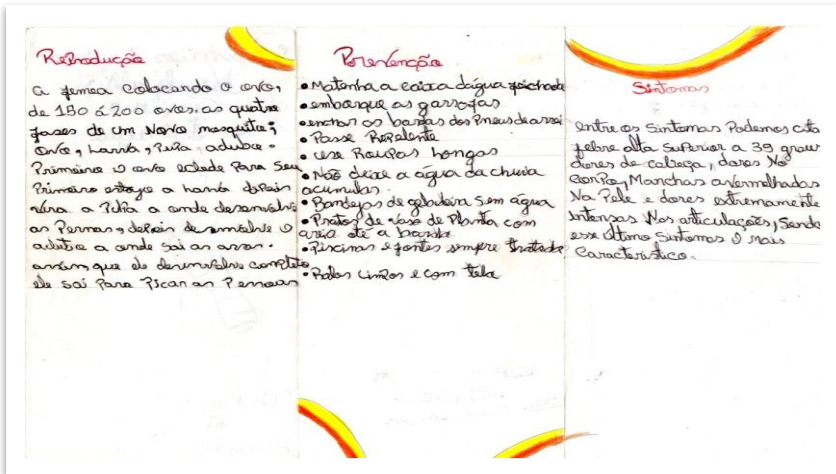 Reprodução
a femea colocando o ovo,
de 150 á 200 ovos. as quatro
fases de um novo mosquito;
ovo, Larva, Pupa, adubo.
Primeiro o ovo eclode Para seu
Primeiro a Larva depois
vira a a onde desenvolve
as Pernas, depois o
a onde sai as asas.
assim que ele desenvolve completo
ele sai Para Picar as Pessoas
Prevenção
• Matenha a caixa dágua fechada
• emborque as garrafas
• encher os dos Pneus de areia
• Passe Repelente
• use Roupas Longas
• Não deixe a água da chuva
acumular.
• Bandejas de geladeira sem água
• Pratos de vaso de Planta com
areia até a borda
• Piscinas e fontes sempre tratada
• Ralos Limpos e com tela
Sintomas
entre os Sintomas Podemos cita
febre alta superior a 39 graus
dores de cabeça, dores No
corpo, Manchas avermelhadas
Na Pele e dores estremamente
intensas Nas articulações, Sendo
esse último Sintomas o mais
Característico.